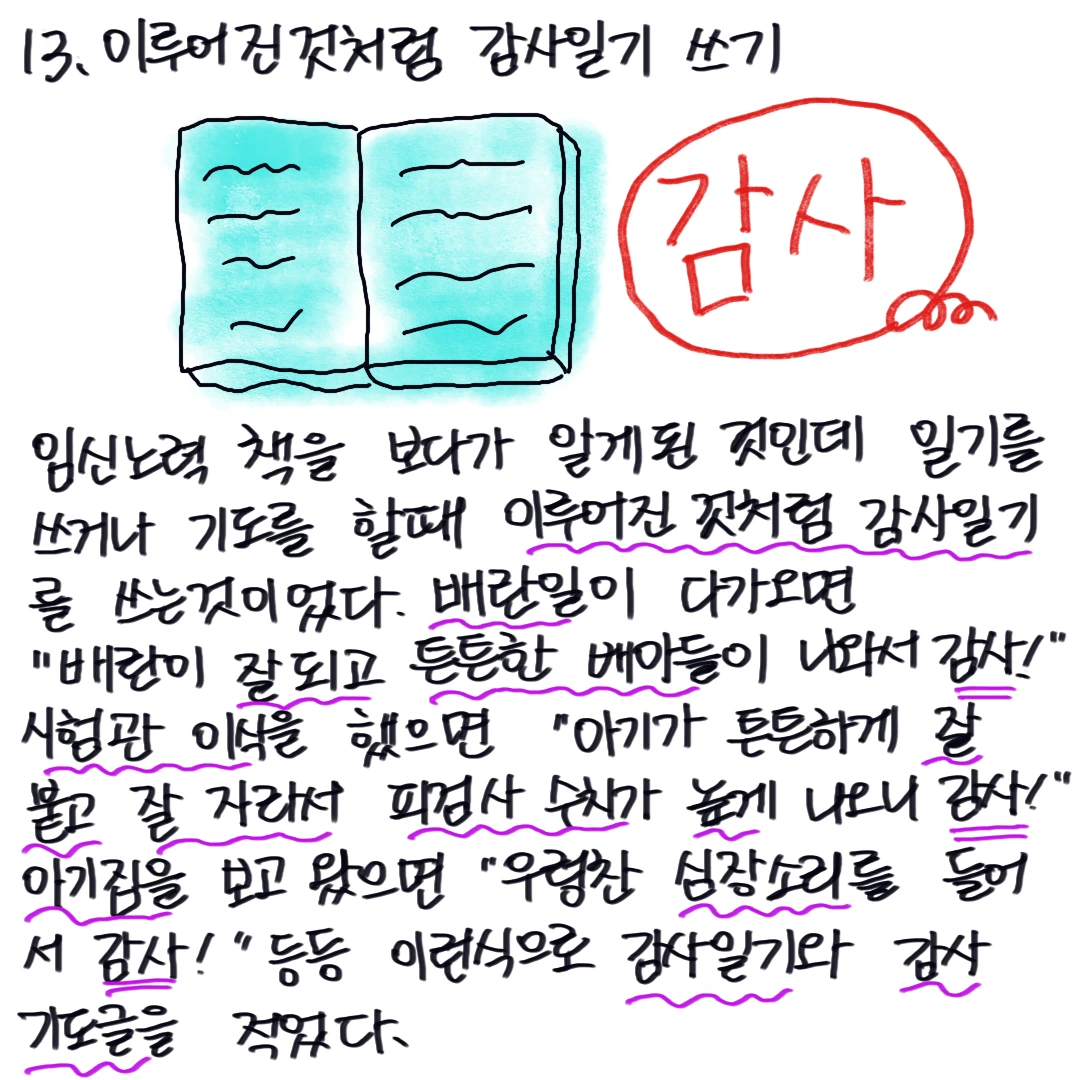 13. 이루어진것처럼 감사일기 쓰기
감사
임신노력 책을 보다가 알게된 것인데 일기를
쓰거나 기도를 할때 이루어진 것처럼 감사일기
를 쓰는것이었다. 배란일이 다가오면
"배란이 잘되고 튼튼한 배아들이 나와서 감사!"
시험관 이식을 했으면 "아기가 튼튼하게 잘
붙고 잘 자라서 피검사 수치가 높게 나오니 감사!"
아기집을 보고 왔으면 "우렁찬 심장소리를 들어
서 감사!" 등등 이런식으로 감사일기와 감사
기도글을 적었다.